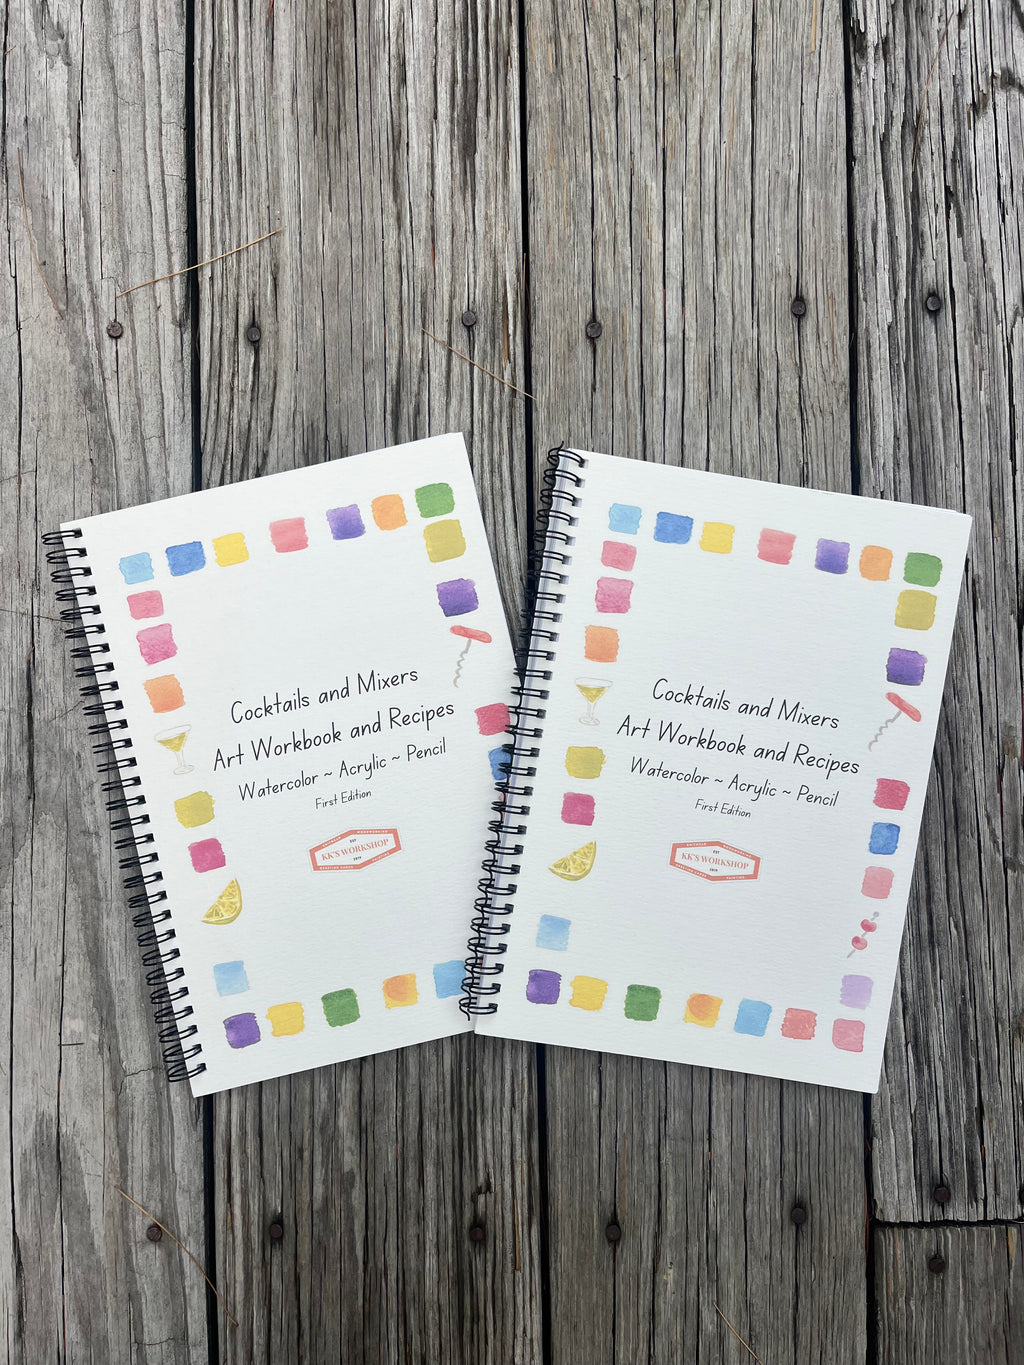 Cocktails and Mixers
Art Workbook and Recipes
Watercolor ~ Acrylic ~ Pencil
First Edition
EST
KK'S WORKSHOP
2019
PAINTING
Cocktails and Mixers
Art Workbook and Recipes
Watercolor ~ Acrylic ~ Pencil
First Edition
EST
KK'S WORKSHOP
2019
PAINTING